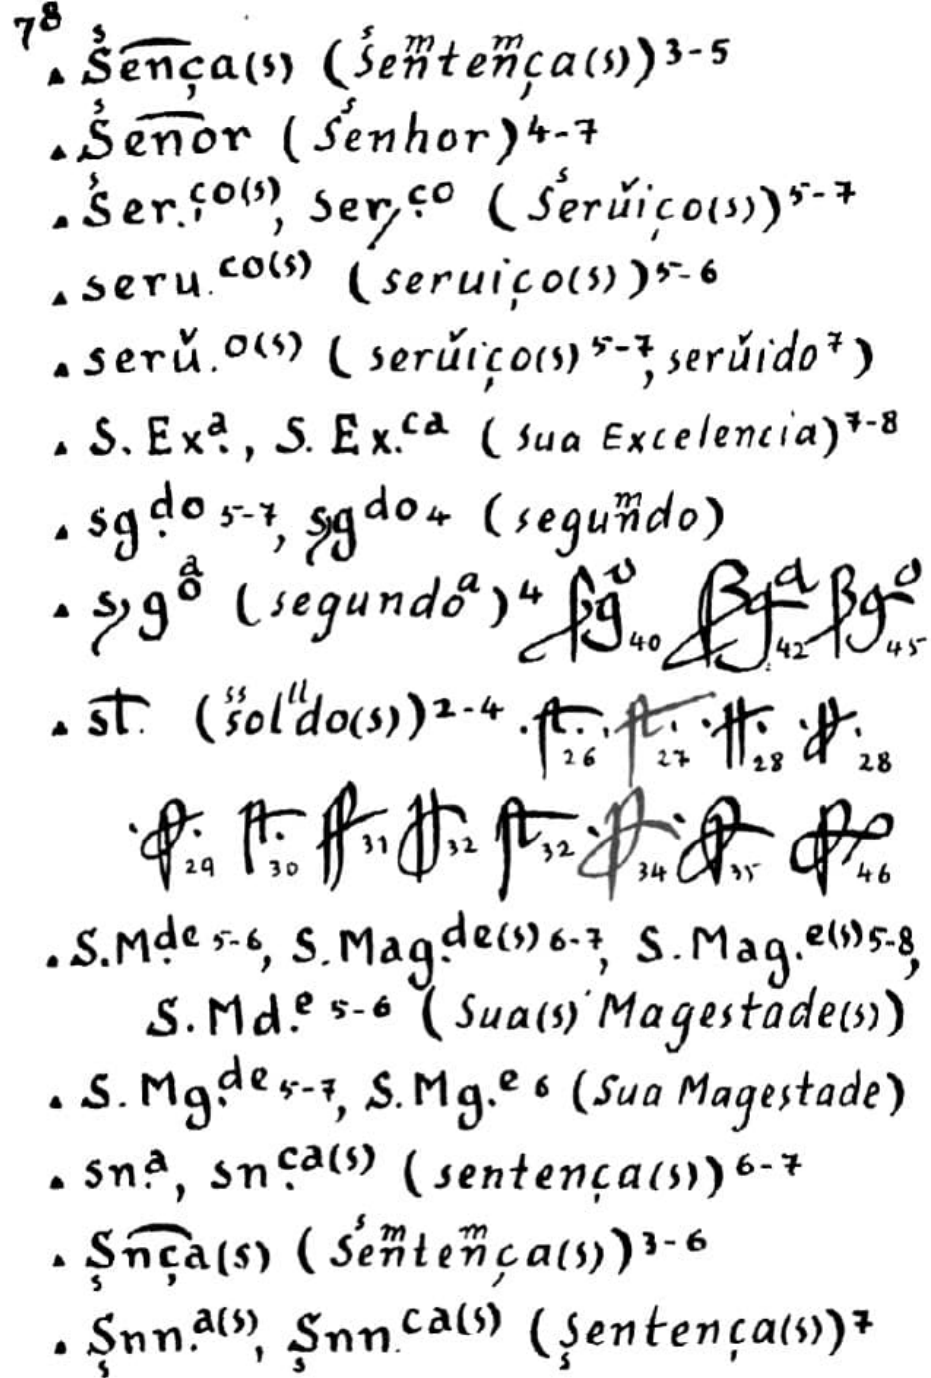 78
▲ Sença(s) (sentença(s)) 3-5
▲ Senor (Senhor) 4-7
▲ Ser.ço(s), ser,ço (Seruiço(s)) 5-7
▲ seru.co(s) (seruiço(s)) 5-6
▲ serǔ.o(s) (serǔiço(s) 5-7, serǔido 7)
▲ S. Ex.a, S. Ex.ca (Sua Excelencia) 7-8
▲ sg.do 5-7, sg do 4 (segundo)
▲ sg o a (segundo a) 4 40 42 45
▲ st. (soldo(s)) 2-4 26 27 28 28
29 30 31 32 32 34 35 46
▲ S.M.de 5-6, S.Mag.de(s) 6-7, S.Mag.e(s) 5-8,
S.Md.e 5-6 (Sua(s) Magestade(s))
▲ S.Mg.de 5-7, S.Mg.e 6 (Sua Magestade)
▲ sn.a, sn.ça(s) (sentença(s)) 6-7
▲ Snça(s) (sentença(s)) 3-6
▲ Snn.a(s), Snn.ca(s) (sentença(s)) 7